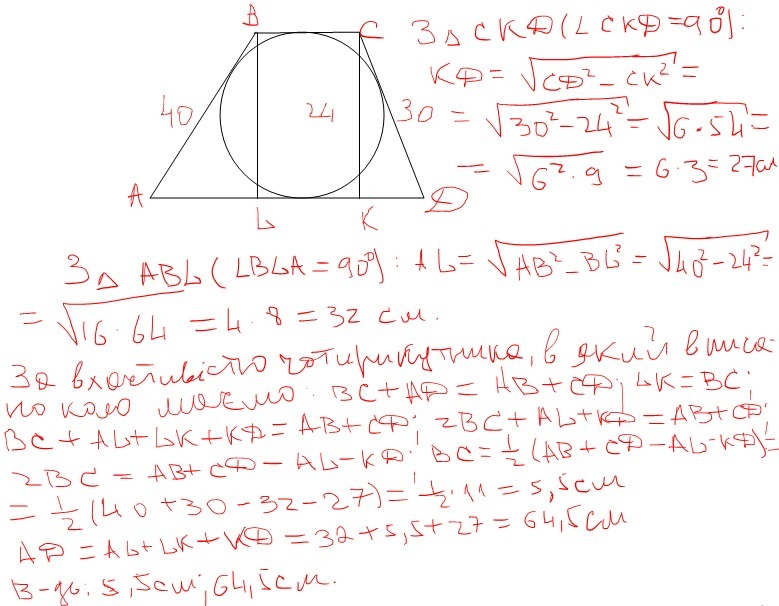 B C
40 24 30
A L K D
З △ CKD (∠CKD = 90°):
KD = √(CD² – CK²) =
= √(30² – 24²) = √(6·54) =
= √(6²·9) = 6·3 = 27см
З △ ABL (∠BLA = 90°): AL = √(AB² – BL²) = √(40² – 24²) =
= √(16·64) = 4·8 = 32 см.
За властивістю чотирикутника, в який вписа-
но коло маємо: BC + AD = AB + CD; LK = BC;
BC + AL + LK + KD = AB + CD; 2BC + AL + KD = AB + CD;
2BC = AB + CD – AL – KD; BC = ½ (AB + CD – AL – KD) =
= ½ (40 + 30 – 32 – 27) = ½·11 = 5,5см
AD = AL + LK + KD = 32 + 5,5 + 27 = 64,5см
В-дь: 5,5см; 64,5см.